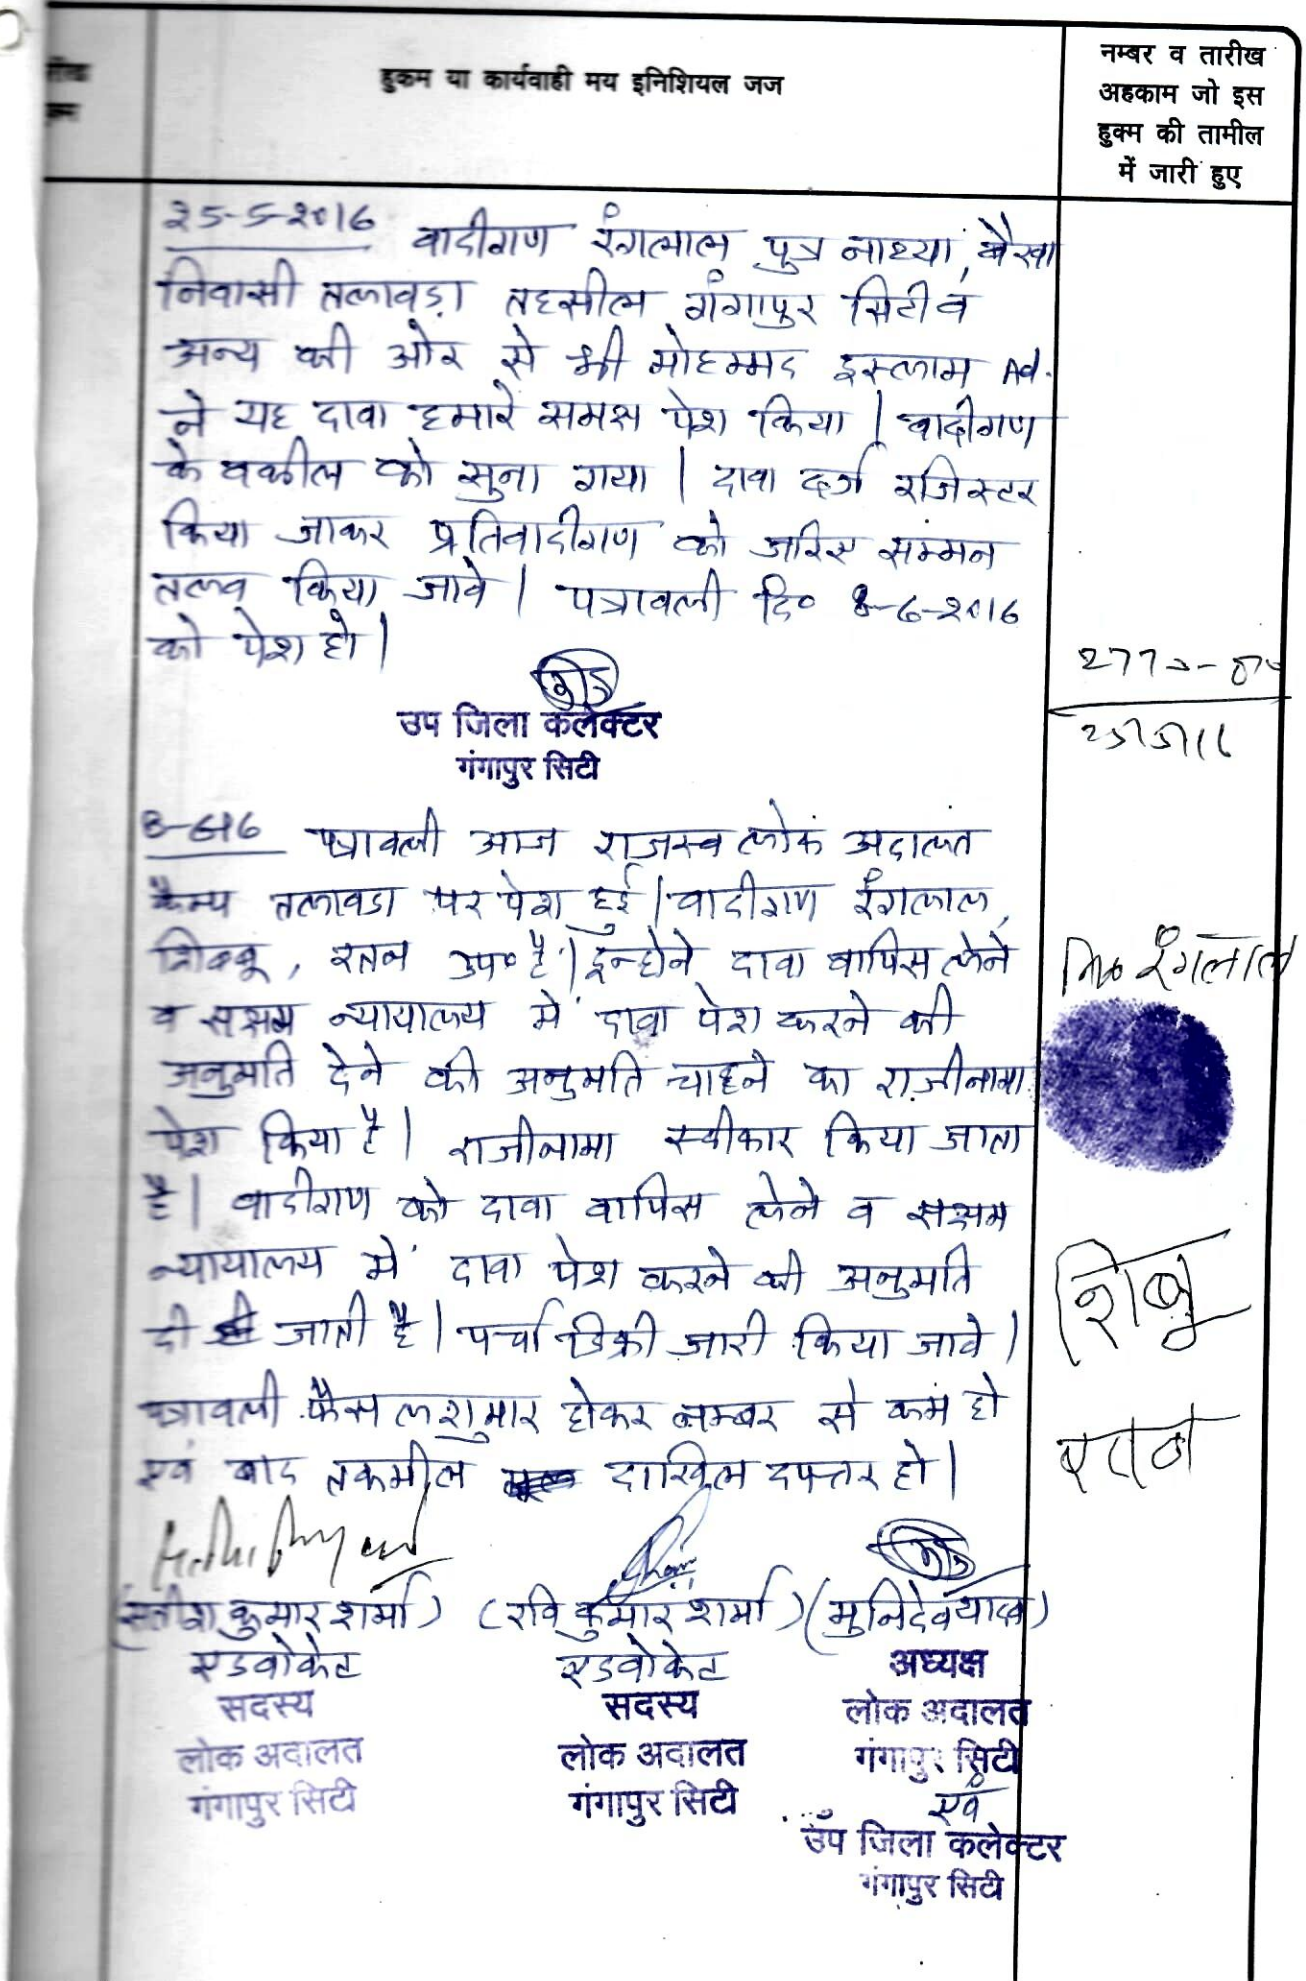 हुकम या कार्यवाही मय इनिशियल जज
नम्बर व तारीख
अहकाम जो इस
हुक्म की तामील
में जारी हुए
25-5-2016 वादीगण रंगलाल पुत्र नाथ्या, बैरवा
निवासी तलावड़ा तहसील गंगापुर सिटी व
अन्य की ओर से श्री मोहम्मद इस्लाम Ad.
ने यह दावा हमारे समक्ष पेश किया | वादीगण
के वकील को सुना गया | दावा दर्ज रजिस्टर
किया जाकर प्रतिवादीगण को जरिए सम्मन
तलब किया जावे | पत्रावली दि० 8-6-2016
को पेश हो |
उप जिला कलेक्टर
गंगापुर सिटी
8-6-16 पत्रावली आज राजस्व लोक अदालत
कैम्प तलावडा पर पेश हुई | वादीगण रंगलाल,
शिब्बू, रतन उप० है | इन्होने दावा वापिस लेने
व सक्षम न्यायालय में दावा पेश करने की
अनुमति देने की अनुमति चाहने का राजीनामा
पेश किया है | राजीनामा स्वीकार किया जाता
है | वादीगण को दावा वापिस लेने व सक्षम
न्यायालय में दावा पेश करने की अनुमति
दी जाती है | पर्चा डिक्री जारी किया जावे |
पत्रावली फैसल शुमार होकर नम्बर से कम हो
एवं बाद तकमील दाखिल दफ्तर हो |
रंगलाल
शिबू
रतन
(सतीश कुमार शर्मा) (रवि कुमार शर्मा) (मुनिदेव यादव)
एडवोकेट एडवोकेट अध्यक्ष
सदस्य सदस्य लोक अदालत
लोक अदालत लोक अदालत गंगापुर सिटी
गंगापुर सिटी गंगापुर सिटी एवं
उप जिला कलेक्टर
गंगापुर सिटी